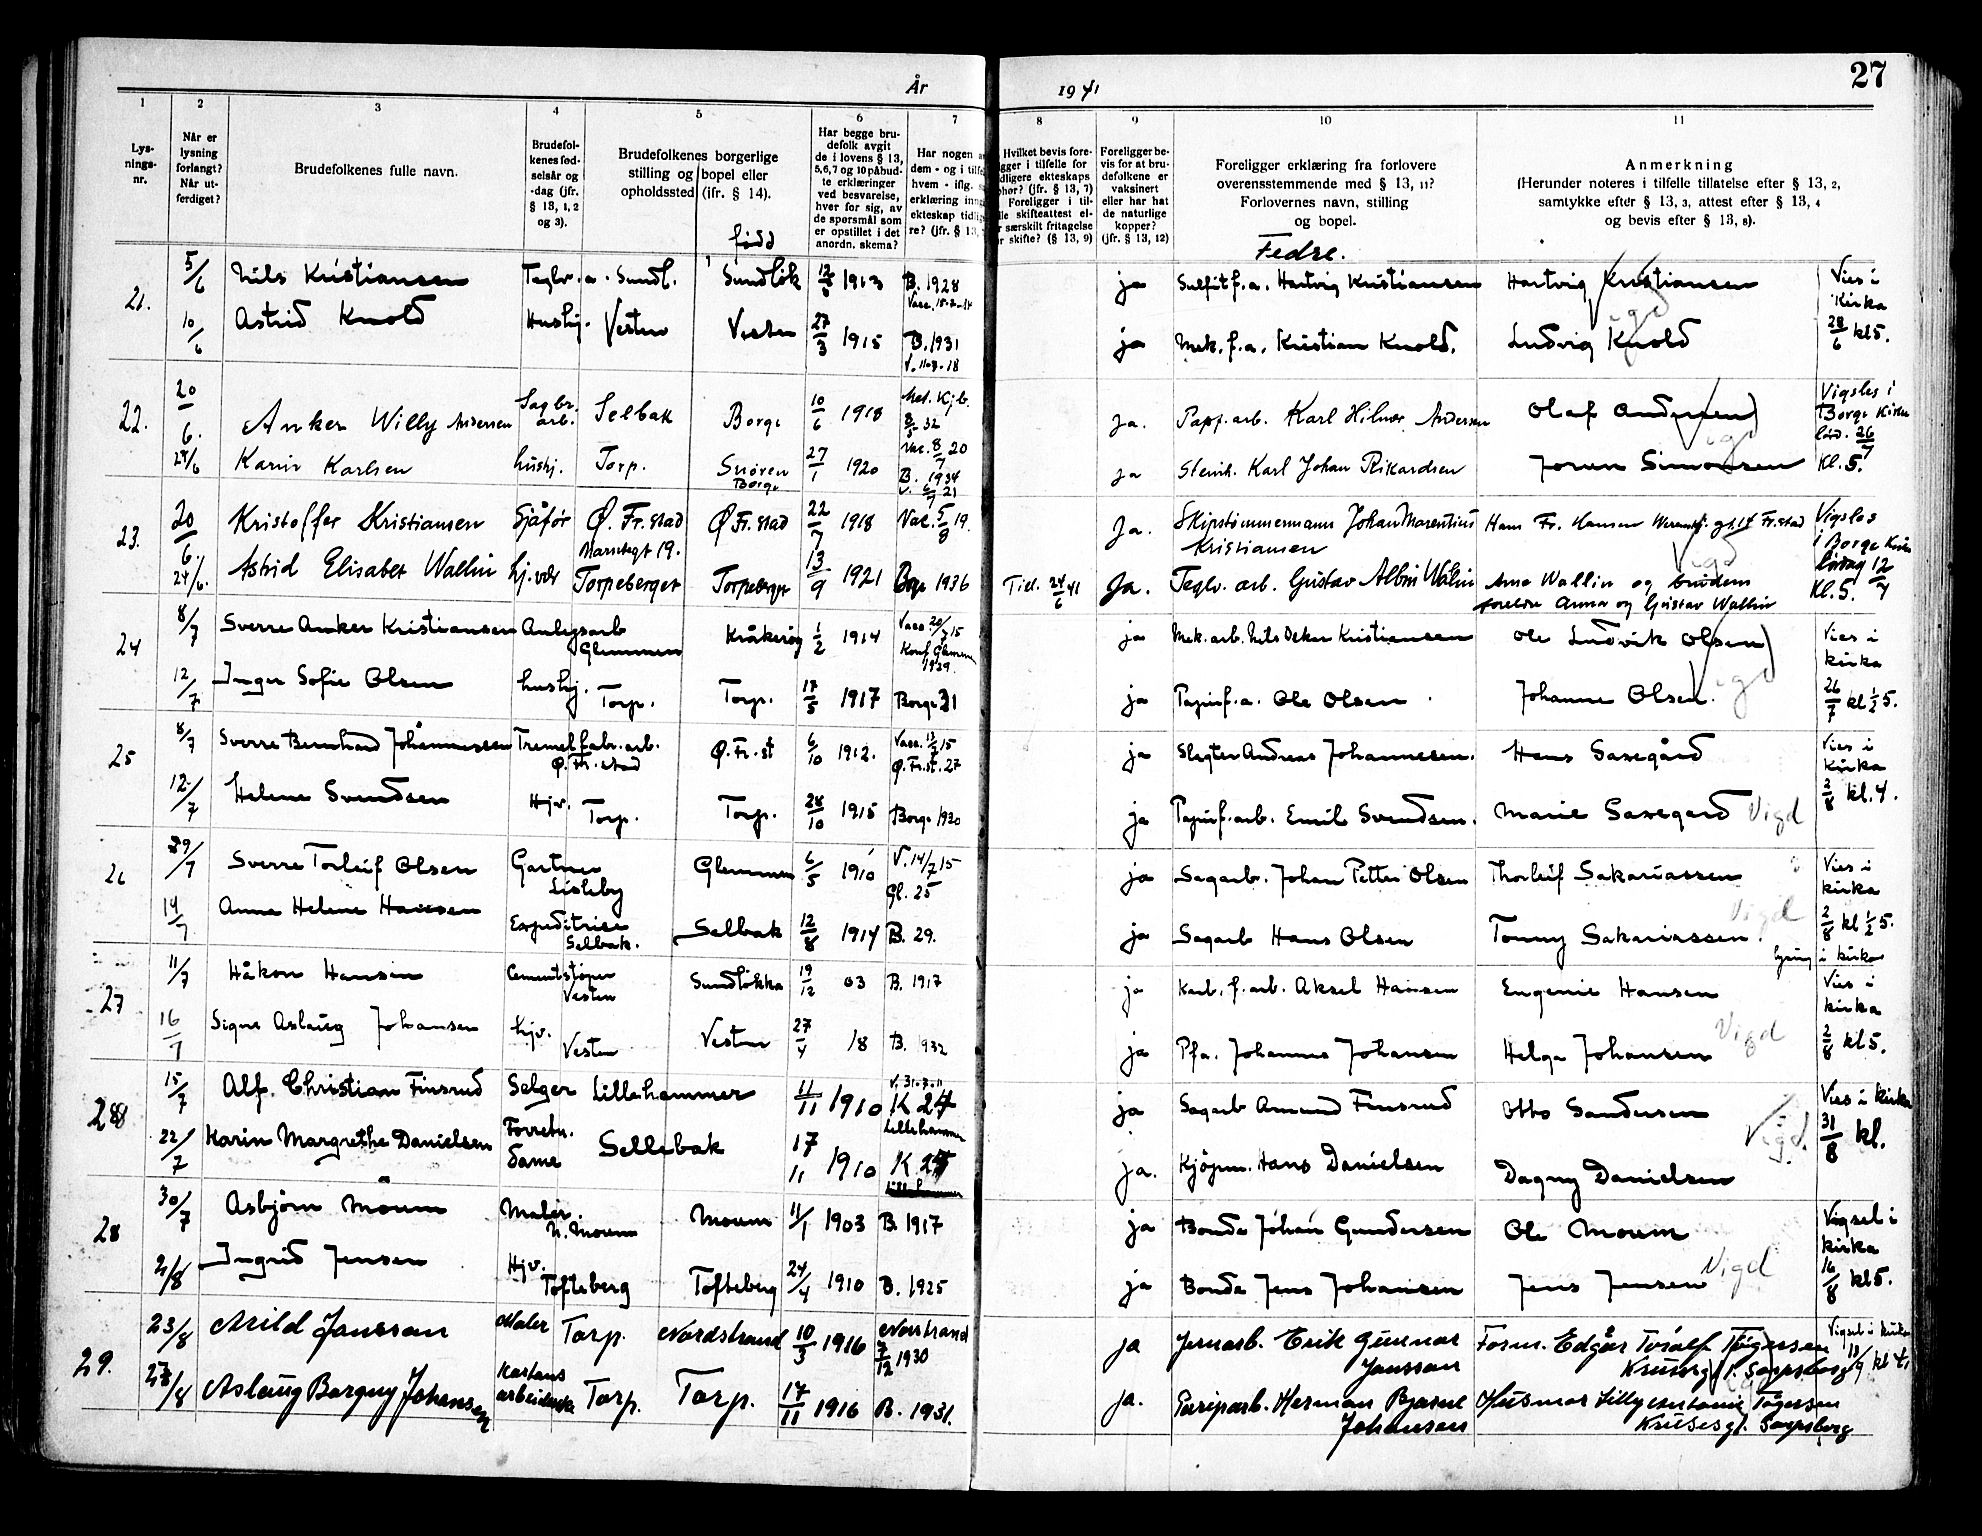 År 1941
27
1 2 3 4 5 6 7 8 9 10 11
Lysningsnr.
Når er lysning forlangt? Når utferdiget?
Brudefolkenes fulle navn.
Brudefolkenes fødselsår og -dag (jfr. § 13, 1, 2 og 3).
Brudefolkenes borgerlige stilling og bopel eller opholdssted (jfr. § 14).
født
Har begge brudefolk avgit de i lovens § 13, 5,6, 7 og 10 påbudte erklæringer ved besvarelse, hver for sig, av de spørsmål som er opstillet i det anordn. skema?
Har nogen a
dem - og i tilfe
hvem - iflg. s
erklæring inng
ekteskap tidlig
re? (jfr. § 13,
Hvilket bevis fore-
gger i tilfelle for
dligere ekteskaps
phør? (jfr. § 13, 7)
Foreligger i til-
lle skifteattest el-
r særskilt fritagelse
or skifte? (§ 13, 9)
Foreligger bevis for at brudefolkene er vaksinert eller har hat de naturlige kopper? (jfr. § 13, 12)
Foreligger erklæring fra forlovere overensstemmende med § 13, 11? Forlovernes navn, stilling og bopel.
Fedre.
Anmerkning
(Herunder noteres i tilfelle tillatelse efter § 13, 2, samtykke efter § 13, 3, attest efter § 13, 4 og bevis efter § 13, 8).
21. 5/6 Nils Kristiansen Teglv. a. Sundl. Sundløk 1913 B. 1928 ja Sulfitf.a. Hartvig Kristiansen Hartvig Kristiansen Vies i Kirka
10/6 Astrid Knold Hushj. Vesten Vesten 27/3 1915 B. 1931 ja Mek. f.a. Kristian Knold. Ludvig Knold 28/6 kl 5.
22. 20/6. Anker Willy Andersen Sagbr. arb. Selbak Borge 10/6 1918 8/5 32 Ja. Papp.arb. Karl Hilmar Andersen Olaf Andersen Vigsles i Borge Kirke lørd. 26/7
24/6 Karin Karlsen hushj. Torp. Snøren Borge 27/1 1920 B. 1934 ja Steinh. Karl Johan Rikardsen Joron Simonsen Kl. 5.
23. 20/6. Kristoffer Kristiansen Sjåfør Ø. Fr.stad Ø Fr. stad 22/7 1918 Vac. 5/8 19. Ja. Skipstømmermann Johan Marentius Kristiansen Hans Fr. Hansen Fr.stad Vigsles i Borge Kirke
24/6. Astrid Elisabet Wallin hj.vær Torpeberget Torpeberget 13/9 1921 Bge 1936 Tid. 24/6 41 Ja. Teglv. arb. Gustav Albin Walin Arne Wallin og brudens foreldre Anna og Gustav Wallin lørdag 12/7 Kl. 5.
24 8/7 Sverre Anker Kristiansen Anlegsarb Glemmen Kråkerøy 1/2 1914 Vacc 20/7 15 Konf Glemmen 1929. ja Mek. arb. Nils Oskar Kristiansen Ole Ludvik Olsen Vies i kirka
12/7 Inger Sofie Olsen hushj. Torp. Torp. 17/5 1917 Borge 31 ja Papirf.a. Ole Olsen Johanne Olsen. Vigd 26/7 kl 1/2 5.
25 8/7 Sverre Bernhard Johannessen Tremelfabr.arb. Ø. Fr. stad Ø. Fr. st 6/10 1912. Ø. Fr. st. 27 ja Slagter Andreas Johannesen. Hans Saxegård Vies i kirka
12/7 Helene Svendsen Hjv. Torp. Torp. 28/10 1915 Borge 1930 ja Papirf.arb. Emil Svendsen. Marie Saxegard Vigd 2/8 kl. 4.
26 29/7 Sverre Torleif Olsen Gartner Lisleby Glemmen 6/5 1910 V. 14/7 15 Gl. 25 ja Sagarb. Johan Petter Olsen Thorleif Sakariassen Vies i kirka
14/7 Anna Helene Hansen Expeditrise Selbak. Selbak 12/8 1914 B. 29. ja Sagarb Hans Olsen Tonny Sakariassen. Vigd 2/8 kl 1/2 5.
27 11/7 Håkon Hansen Cementstøper Vesten Sundløkka 19/12 03 B. 1917 ja Karb. f. arb. Aksel Hansen Eugenie Hansen lysing i kirka Vies i kirka
16/7 Signe Aslaug Johansen Hjv. Vesten Vesten 27/4 18 B. 1932 ja Pfa. Johannes Johansen Helga Johansen Vigd 2/8 kl 5.
28 15/7 Alf. Christian Finsrud Selger Lillehammer 11/11 1910 K 24 Lillehammer ja Sagarb Amund Finsrud Otto Sandersen Vies i kirka
22/7 Karin Margrethe Danielsen Forretn. dame Sellebak 17/11 1910 ja. Kjøpm. Hans Danielsen Dagny Danielsen Vigd. 31/8 kl.
28 30/7 Asbjørn Moum Maler. N. Moum Moum 11/1 1903 B. 1917 ja Bonde Johan Gundersen Ole Moum Vigsel i kirka
2/8 Ingrid Jensen Hjv. Tofteberg Tofteberg 24/4 1910 B. 1925 ja Bonde Jens Johansen Jens Jensen Vigd 16/8 kl 5.
29. 23/8 Arild Jansson Maler Torp. Nordstrand 10/3 1916 Norstrand 7/12 1930 ja Jernarb. Erik Gunnar Jansson Form. Edgår Torålf Tøgersen Krusesgt. Sarpsborg Vigsel i kirka
27/8 Aslaug Borgny Johansen Kartonsarbeiderske Torp. Torp. 17/11 1916 B. 1931. ja. Papirarb. Herman Bjarne Johansen Husmor Lilly Tøgersen Krusesgt. Sarpsborg